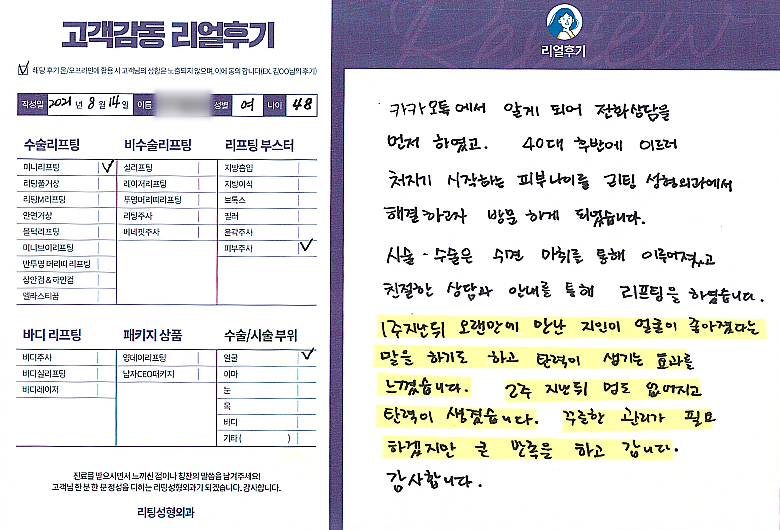 고객감동 리얼후기
해당 후기 온/오프라인에 활용 시 고객님의 성함은 노출되지 않으며, 이에 동의 합니다(EX. 김OO님의 후기)
작성일 2021년 8월 14일 이름 성별 여 나이 48
수술리프팅
미니리프팅
리팅풀거상
리팅M리프팅
안면거상
볼턱리프팅
미니브이리프팅
반투명 머리띠 리프팅
상안검 & 하안검
엘라스티꿈
비수술리프팅
실리프팅
레이저리프팅
투명머리띠리프팅
리팅주사
베네핏주사
리프팅 부스터
지방흡입
지방이식
보톡스
필러
윤곽주사
피부주사
바디 리프팅
바디주사
바디실리프팅
바디레이저
패키지 상품
영데이리프팅
남자CEO패키지
수술/시술 부위
얼굴
이마
눈
목
바디
기타( )
진료를 받으시면서 느끼신 점이나 칭찬의 말씀을 남겨주세요!
고객님 한 분 한 분 정성을 다하는 리팅성형외과가 되겠습니다. 감사합니다.
리팅성형외과
Review
리얼후기
카카오톡에서 알게 되어 전화상담을
먼저 하였고. 40대 후반에 이르러
처지기 시작하는 피부나이를 리팅 성형외과에서
해결하고자 방문 하게 되었습니다.
시술 · 수술은 수면 마취를 통해 이루어졌고
친절한 상담과 안내를 통해 리프팅을 하였습니다.
1주지난뒤 오랜만에 만난 지인이 얼굴이 좋아졌다는
말을 하기도 하고 탄력이 생기는 효과를
느꼈습니다. 2주 지난뒤 멍도 없어지고
탄력이 생겼습니다. 꾸준한 관리가 필요
하겠지만 큰 만족을 하고 갑니다.
감사합니다.